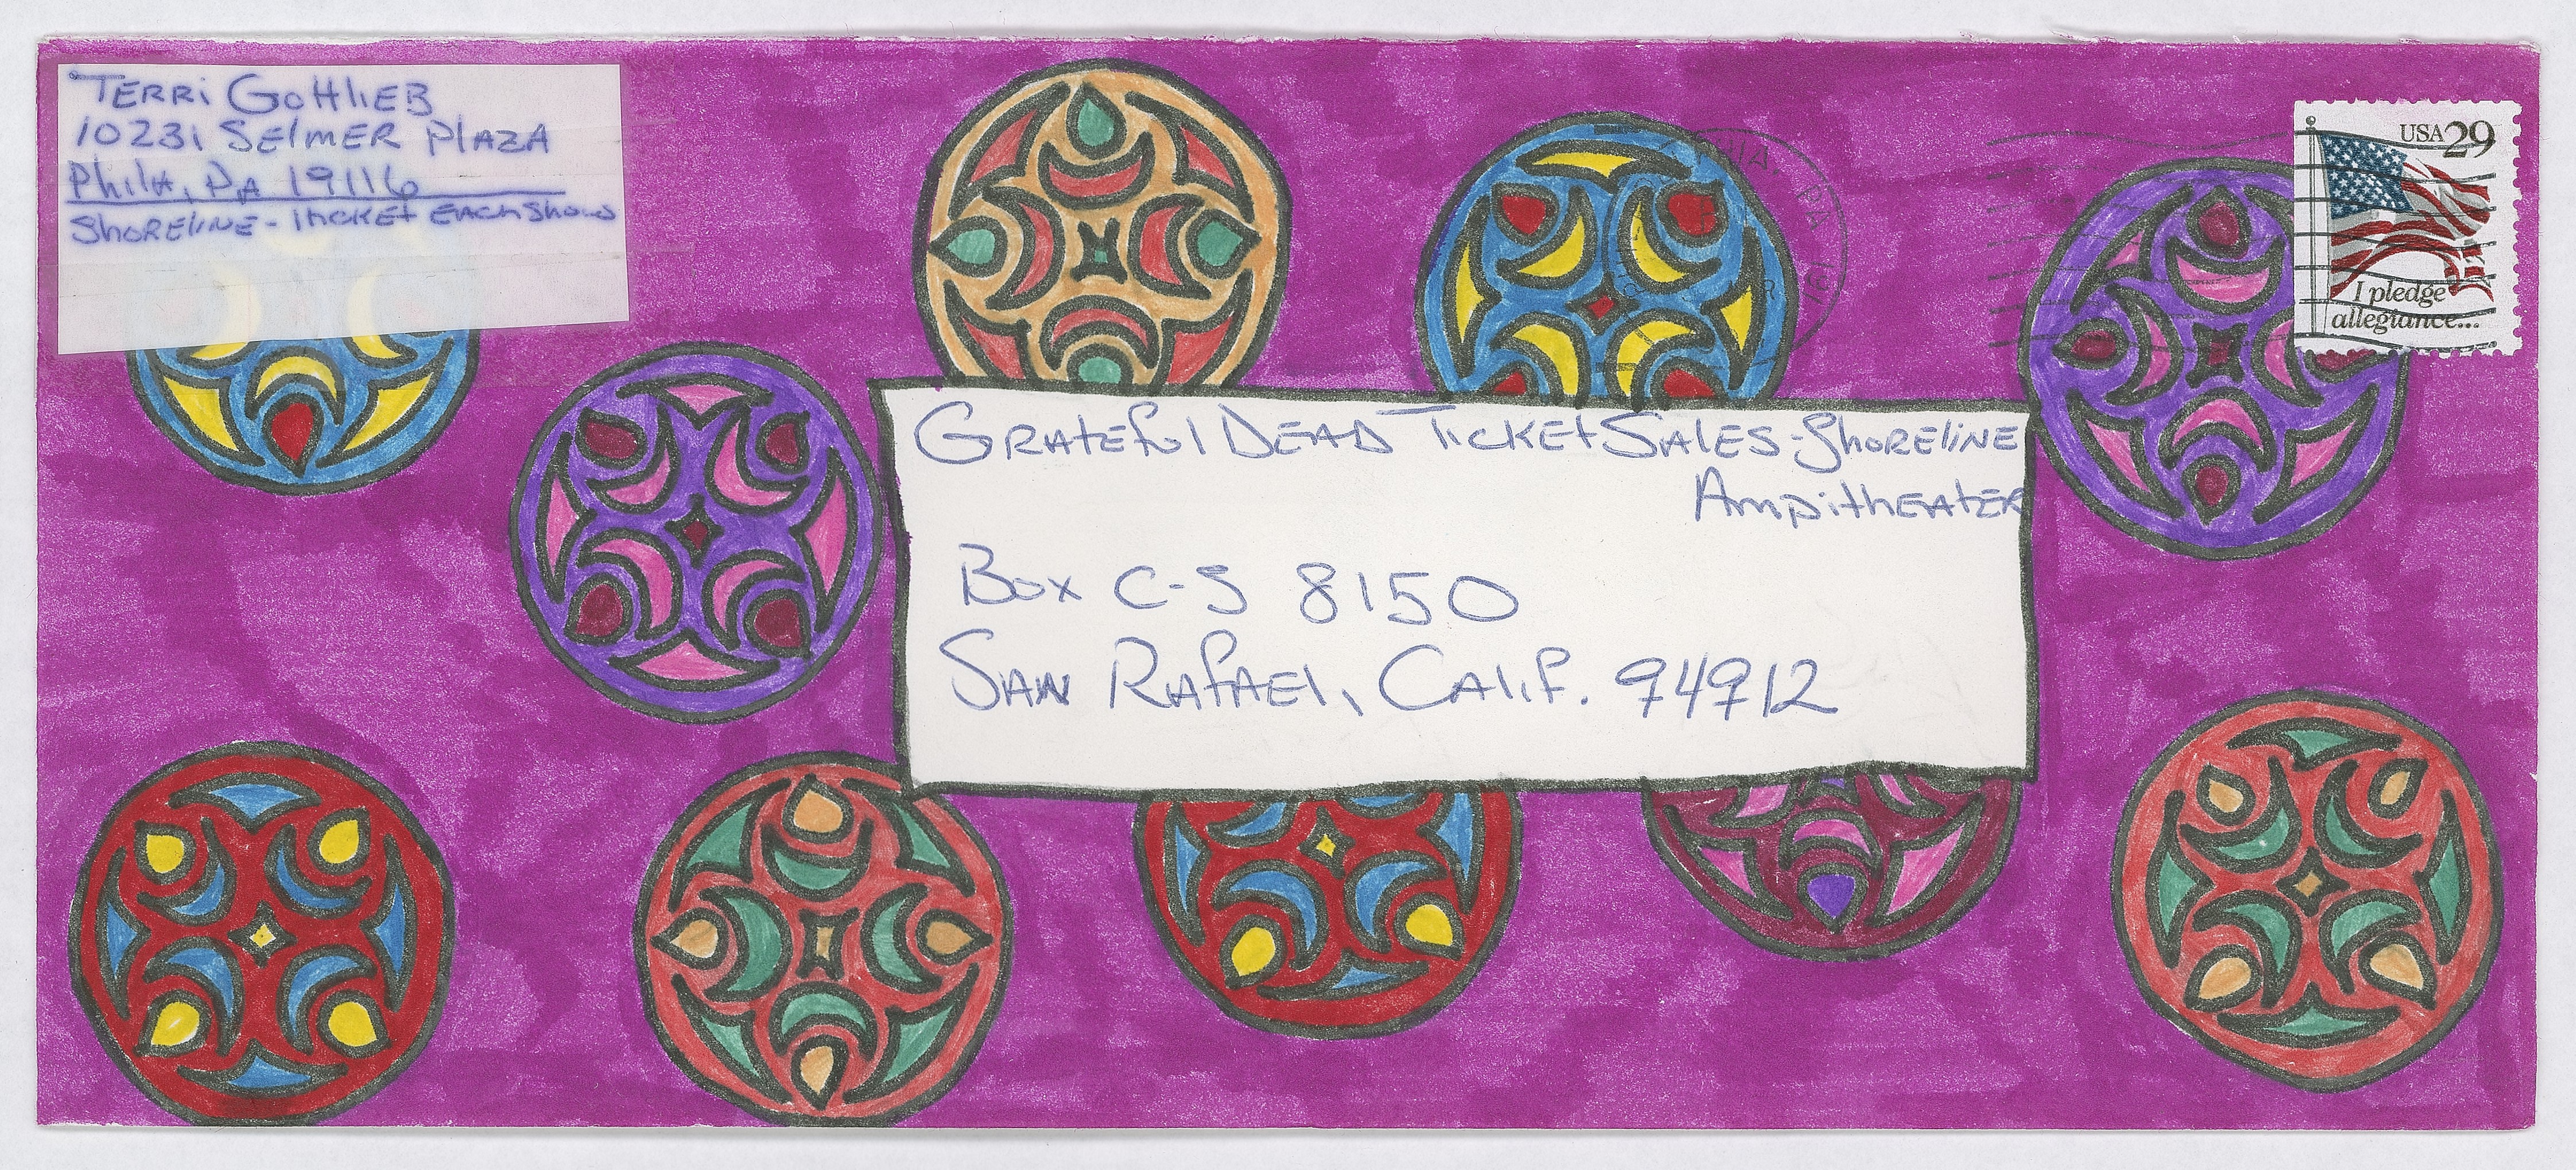 TERRi GottliEB
10231 SElmER PlAZA
PhilA, PA 19116
ShoRElinE - 1 tickEt EAch Show
USA 29
I pledge
allegiance...
PA 191
GRAtEful DEAD TickEt SAlES - ShoREliNE
AmpithEAtER
Box C-S 8150
SAN RAfAEl, CAlif. 94912